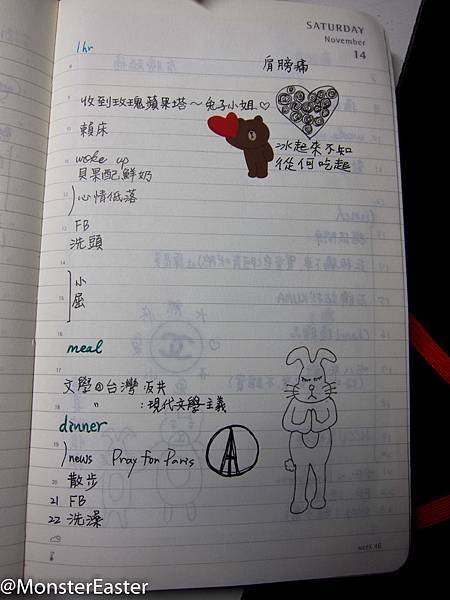 SATURDAY
November
14
1hr
肩膀痛
8
9 收到玫瑰蘋果塔～兔子小姐♡
10 賴床
冰起來不知
從何吃起
11 woke up
貝果配鮮奶
心情低落
FB
洗頭
14
小
15
屈
16
meal
17 文學@台灣
〃 :現代文學主義
18
dinner
19 news Pray for Paris
20 散步
21 FB
22 洗澡
WEEK 46
@MonsterEaster